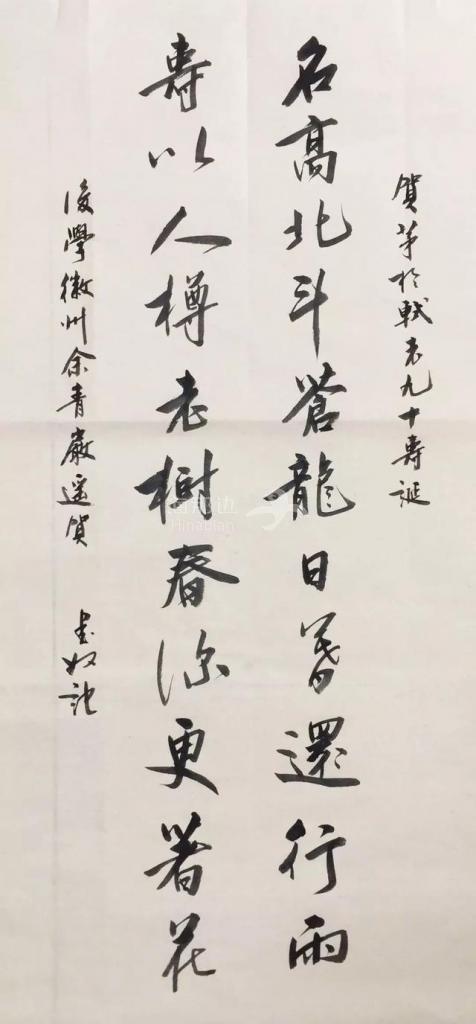 賀茅於軾老九十壽誕
名高北斗蒼龍日暮還行雨
壽以人樽老樹春深更著花
後學徽州余青巖遥賀 書奴記
海那边
Hinabian